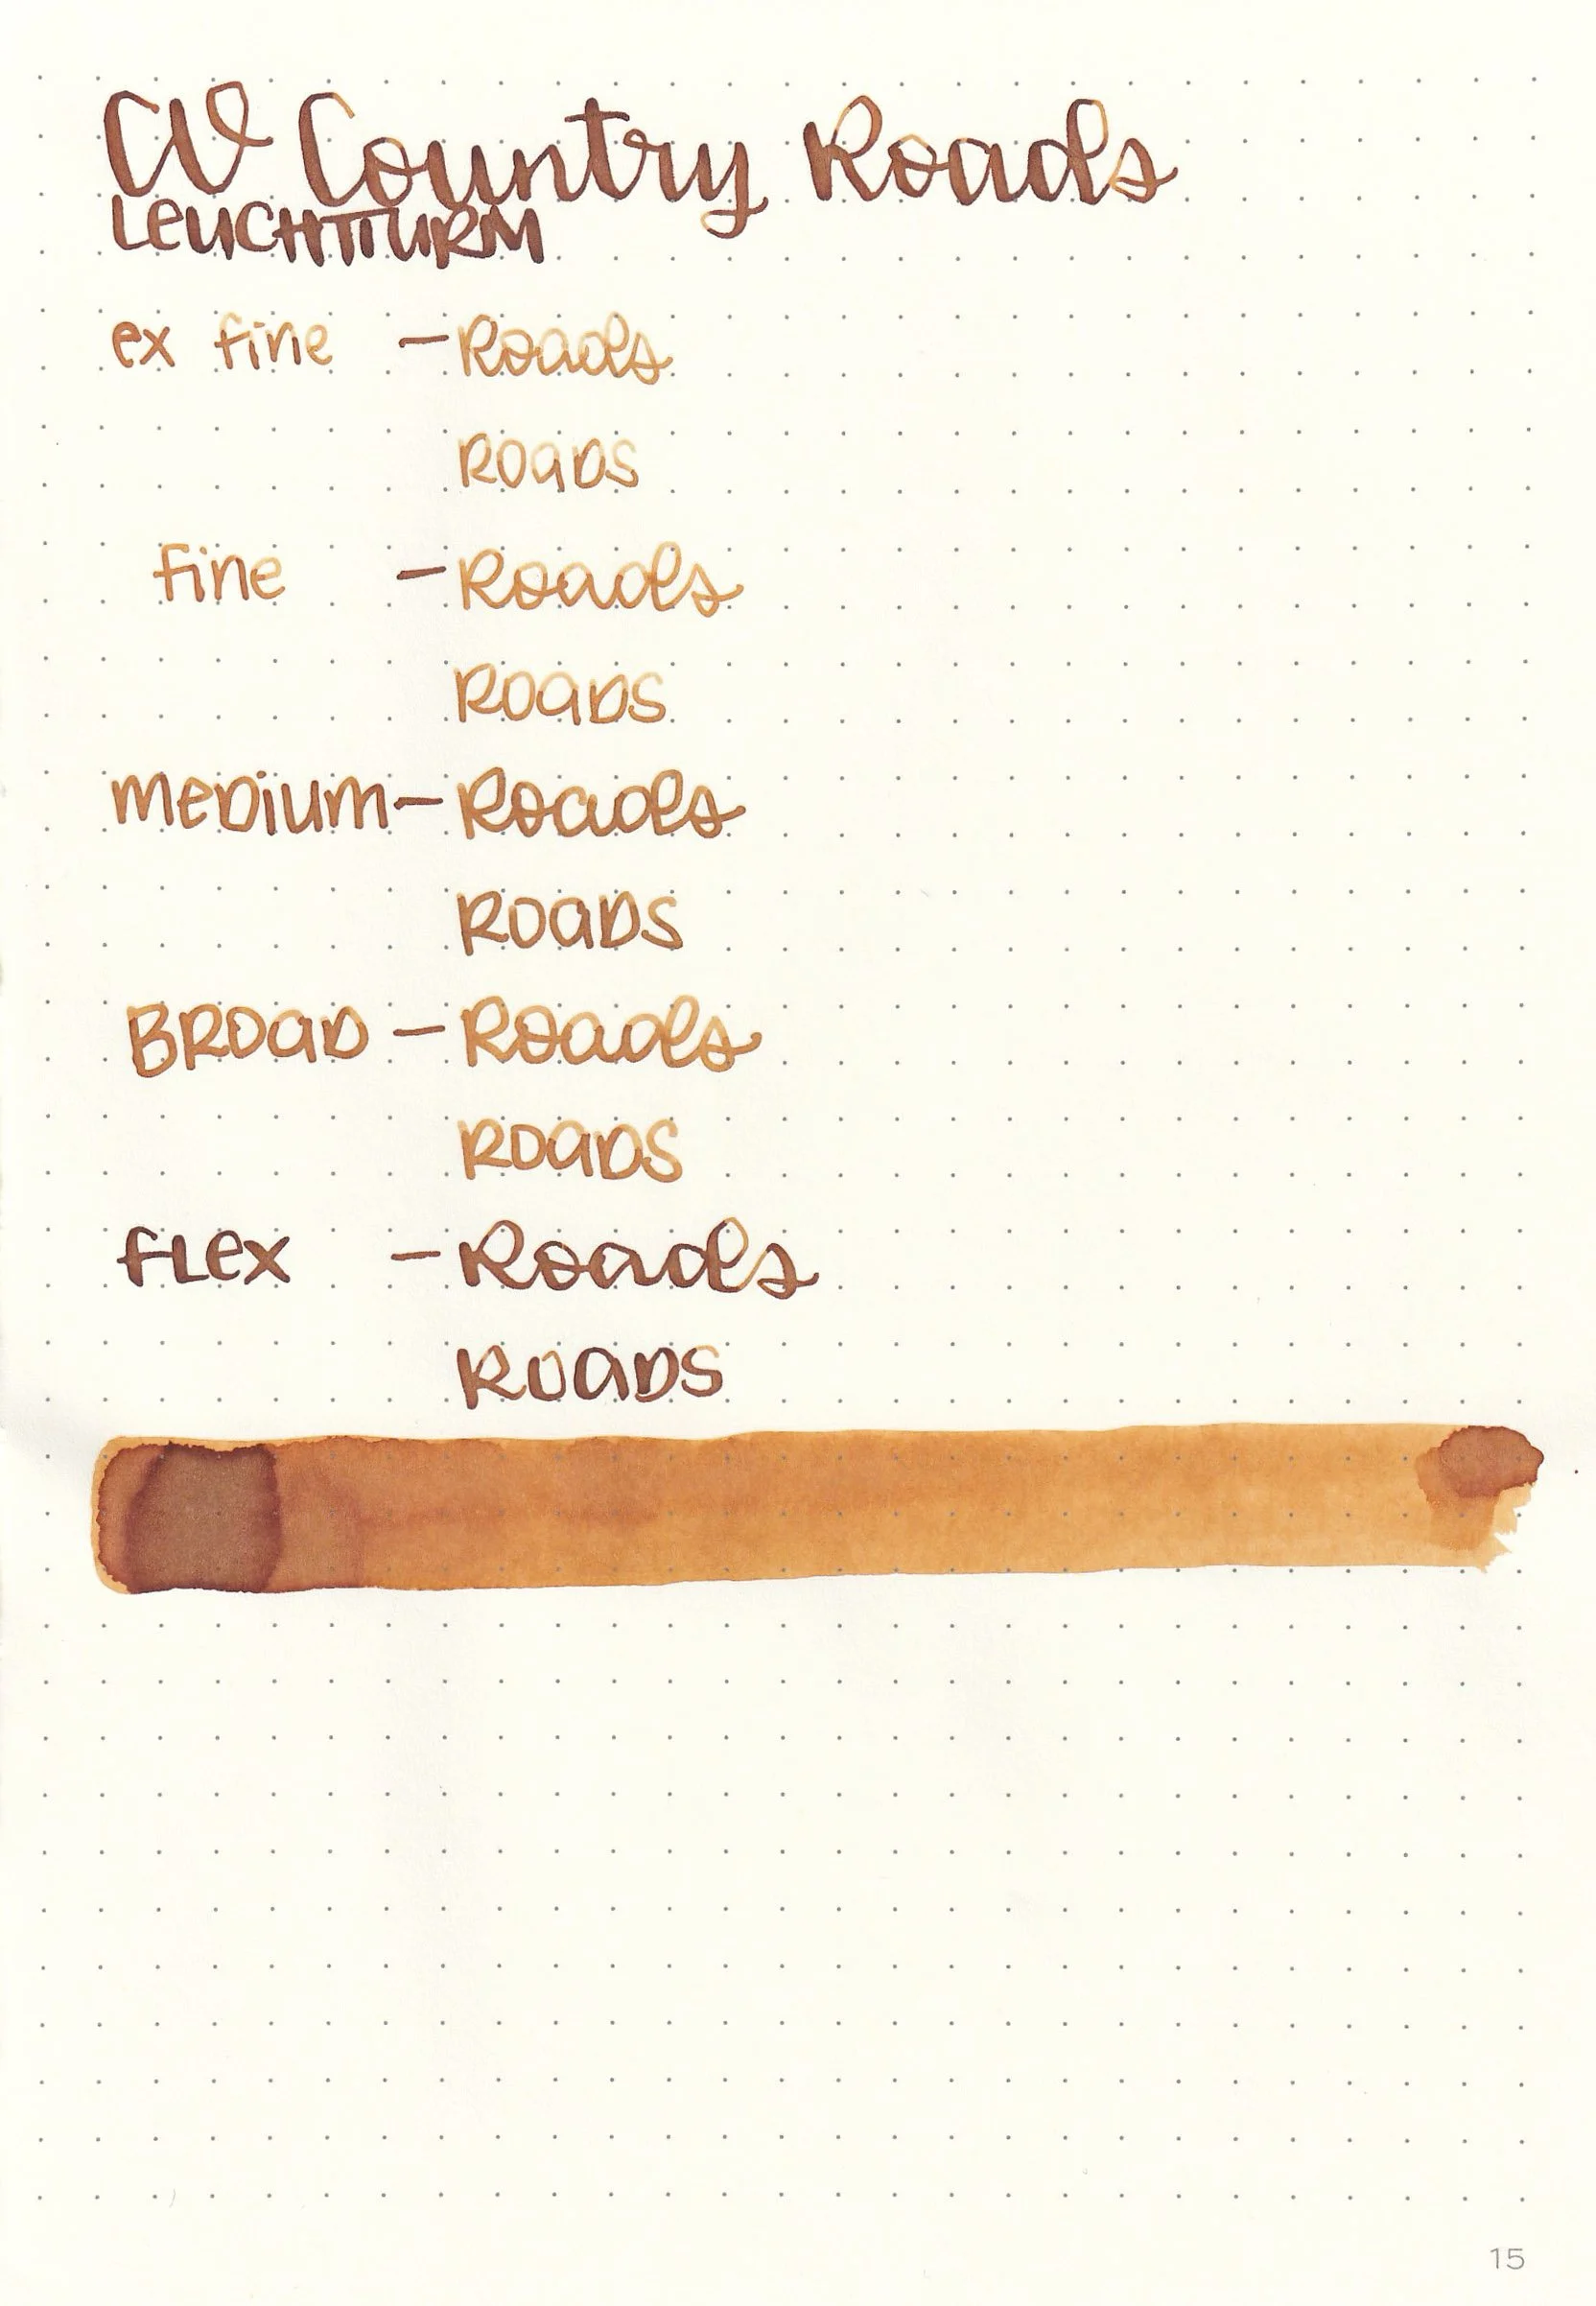 CV Country Roads
LEUCHTTURM
ex fine - Roads
ROADS
fine - Roads
ROADS
MEDIUM - Roads
ROADS
BROAD - Roads
ROADS
FLEX - Roads
ROADS
15